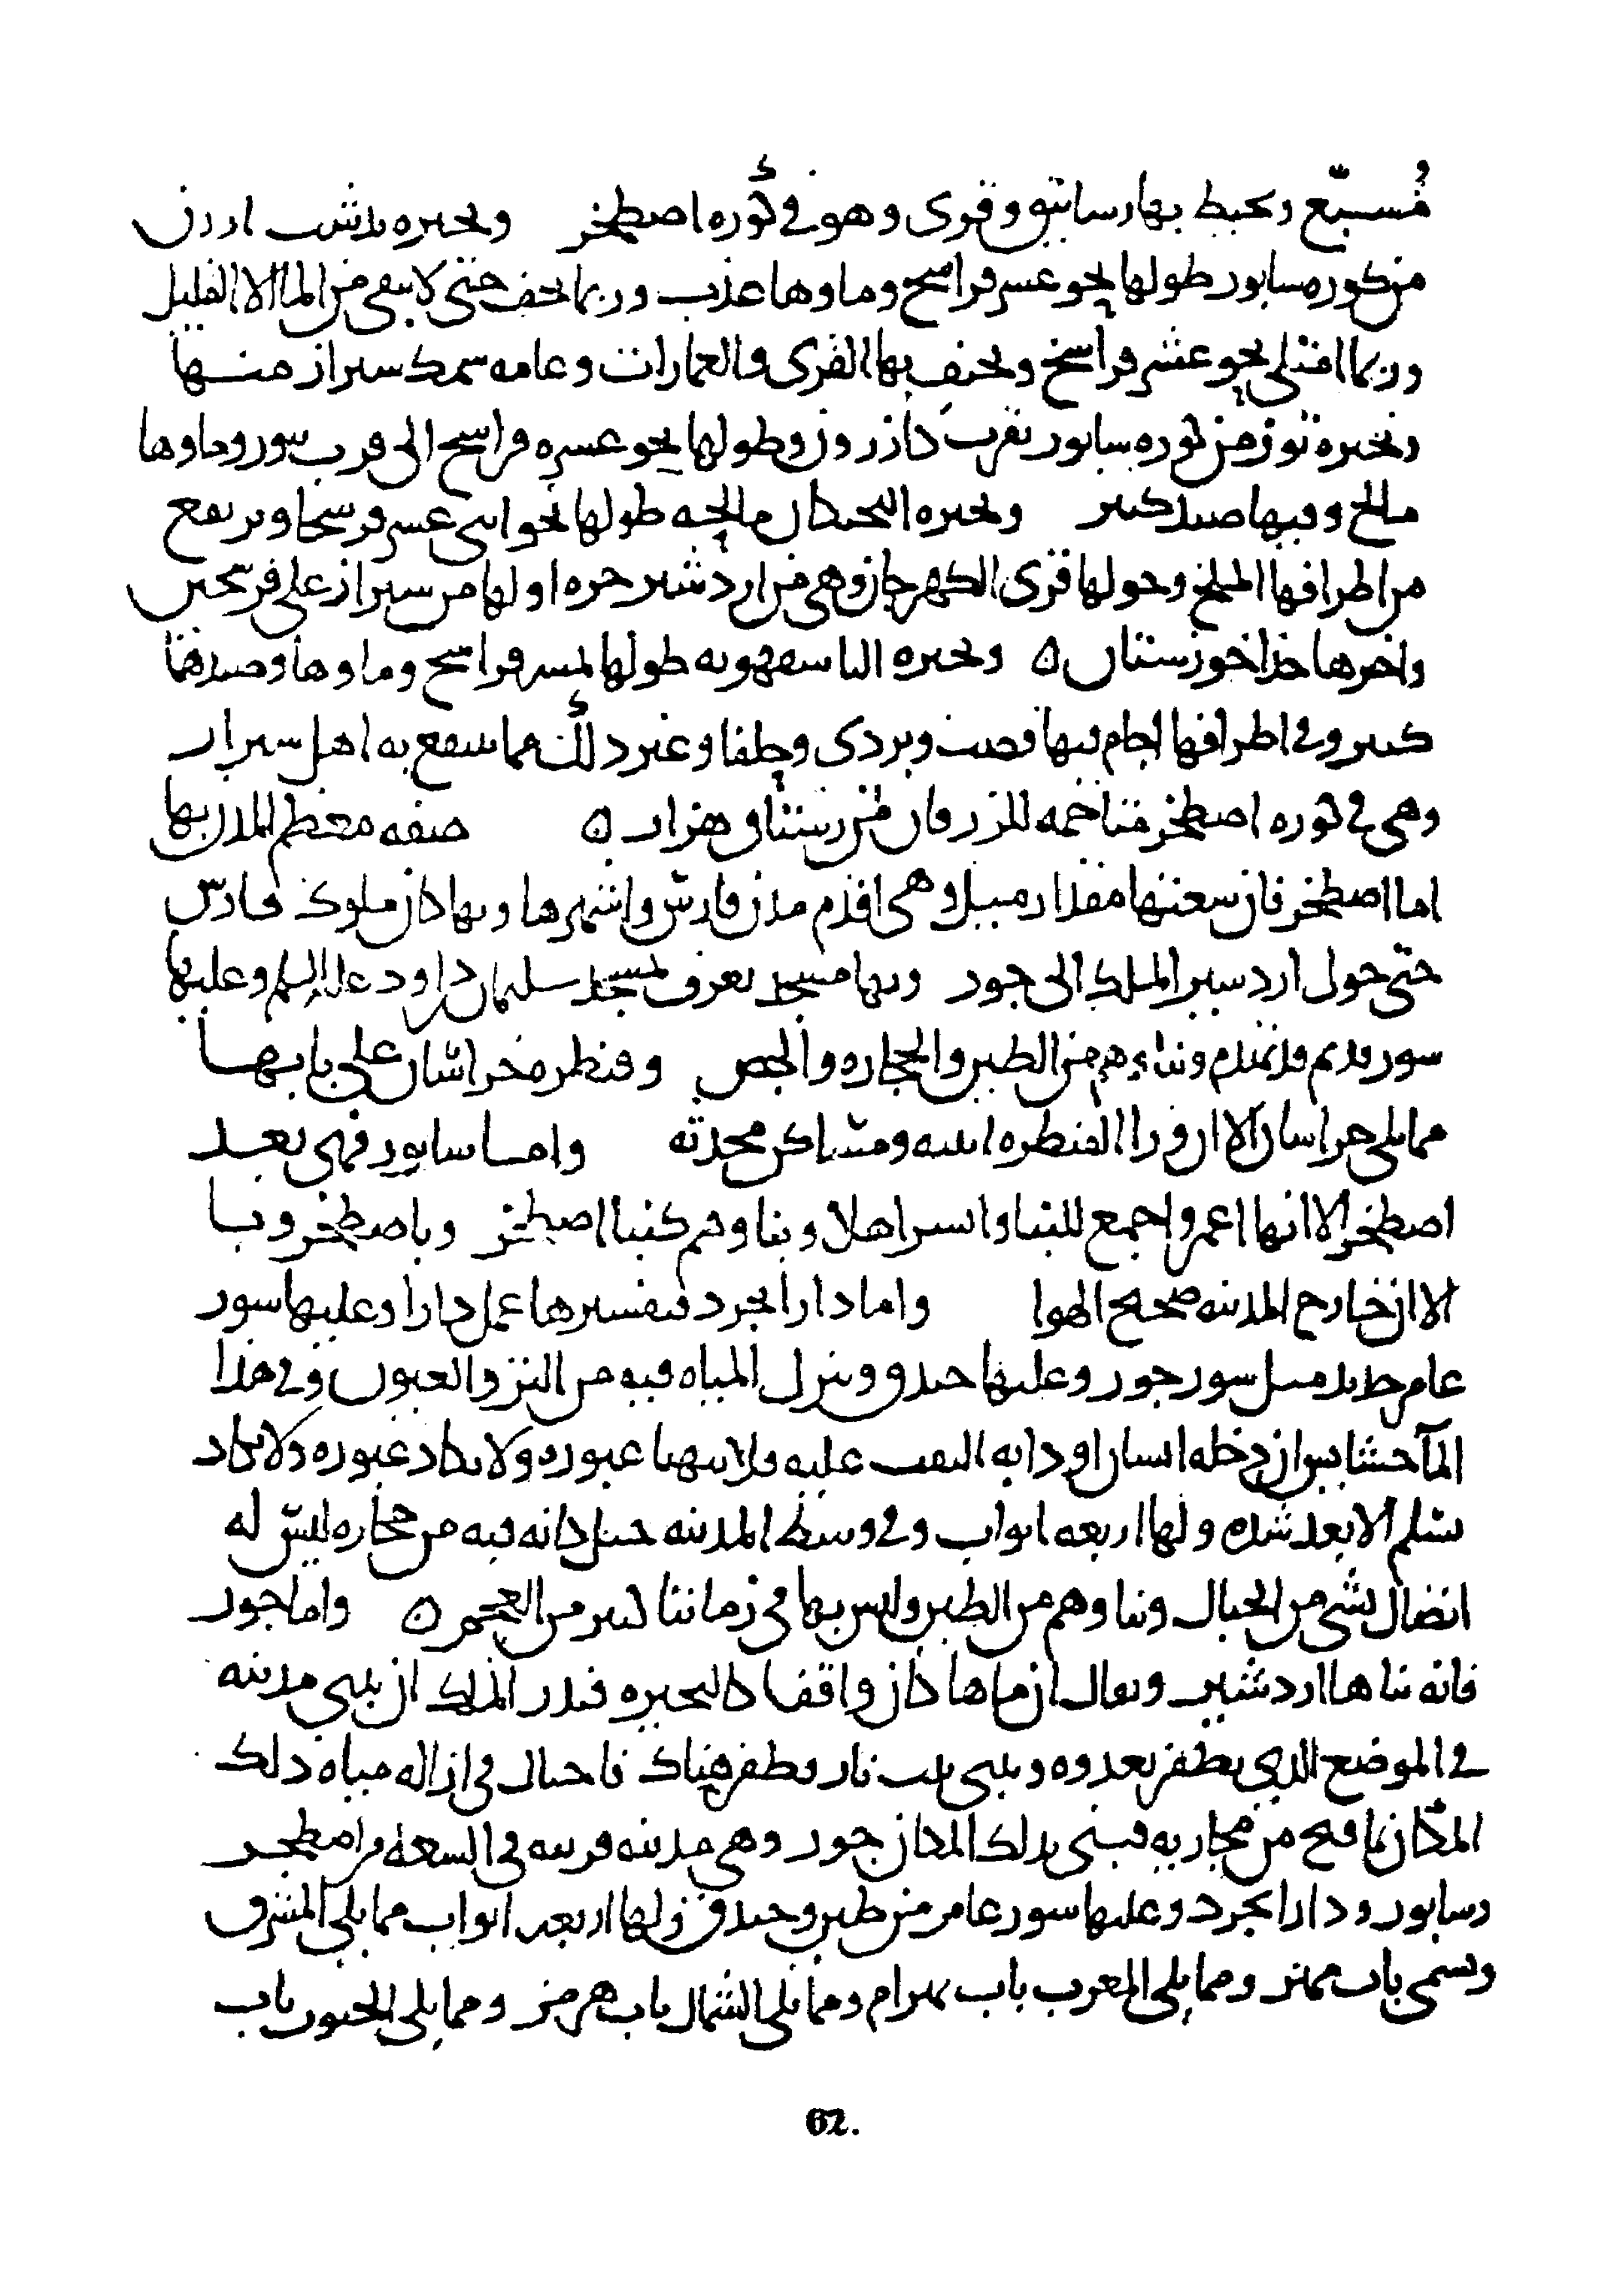 مسبّع ويحيط بها رساتيق وقرى وهو في كوره اصطخر وبحيره بدشت ارزن
من كوره سابور طولها نحو عشر فراسخ وماوها عذب وربما تجف حتى لا يبقى من الما الا القليل
وربما امتلى نحو عشر فراسخ وتحتف بها القرى والعمارات وعامه سمك شيراز منها
وبحيره توز من كوره سابور بقرب كازرون وطولها نحو عشره فراسخ الى قرب مور وماوها
مالح وفيها صيد كثير وبحيره الجنكان مالحه طولها نحو اثنى عشر فرسخا ويرتفع
من اطرافها الملح وحولها قرى الكهرجان وهي من اردشير خره اولها من شيراز على فرسخين
واخرها حذا خوزستان ٥ وبحيره الباسفهويه طولها ثمنيه فراسخ وماوها وصيدها
كثير وفي اطرافها اجام فيها قصب وبردى وحلفا وغير ذلك مما ينتفع به اهل شيراز
وهي في كوره اصطخر متاخمه للزرقان من رستاق هزار ٥ صفه معظم المدن بها
اما اصطخر فان سعتها مقدار ميل وهي اقدم مدن فارس واشهرها وبها كان ملوك فارس
حتى حول اردشير الملك الى جور وبها مسجد يعرف بمسجد سليمان بن داود عليه السلم وعليها
سور قديم قد تهدم وبناءهم من الطين والحجاره والجص وقنطره خراسان على بابها
مما يلي خراسان الا ان ورا القنطره ابنيه ومساكن محدثه واما سابور فهي بعد
اصطخر الا انها اعمر واجمع للبنا وايسر اهلا وبناوهم كبنا اصطخر وباصطخر وبا
الا ان خارج المدينه صحيح الهوا واما دارابجرد فتفسيرها عمل دارا وعليها سور
عامر جديد مثل سور جور وعليها خندق وينزل المياه فيه من النز والعيون وفي هذا
المآ حشايش ان دخله انسان او دابه التفت عليه فلا يتهيا عبوره ولا يكاد عبوره ولا يكاد
يسلم الا بعد شده ولها اربعه ابواب وفي وسط المدينه جبل كانه قبه من حجاره ليس له
اتصال بشي من الجبال وبناوهم من الطين وليس بها في زماننا كثير من العجم ٥ واما جور
فانه بناها اردشير ويقال ان ماها كان واقفا كالبحيره فنذر الملك ان يبني مدينه
في الموضع الذي يظفر بعدوه ويبنى بيت نار وظفر هناك فاحتال في ازاله مياه ذلك
المكان بما فتح من مجاريه فبنى بذلك المكان جور وهي مدينه قريبه في السعه من اصطخر
وسابور ودارابجرد وعليها سور عامر من طين وخندق ولها اربعه ابواب مما يلي المشرق
ويسمى باب مهر ومما يلي المغرب باب بهرام ومما يلي الشمال باب هرمز ومما يلي الجنوب باب
62.